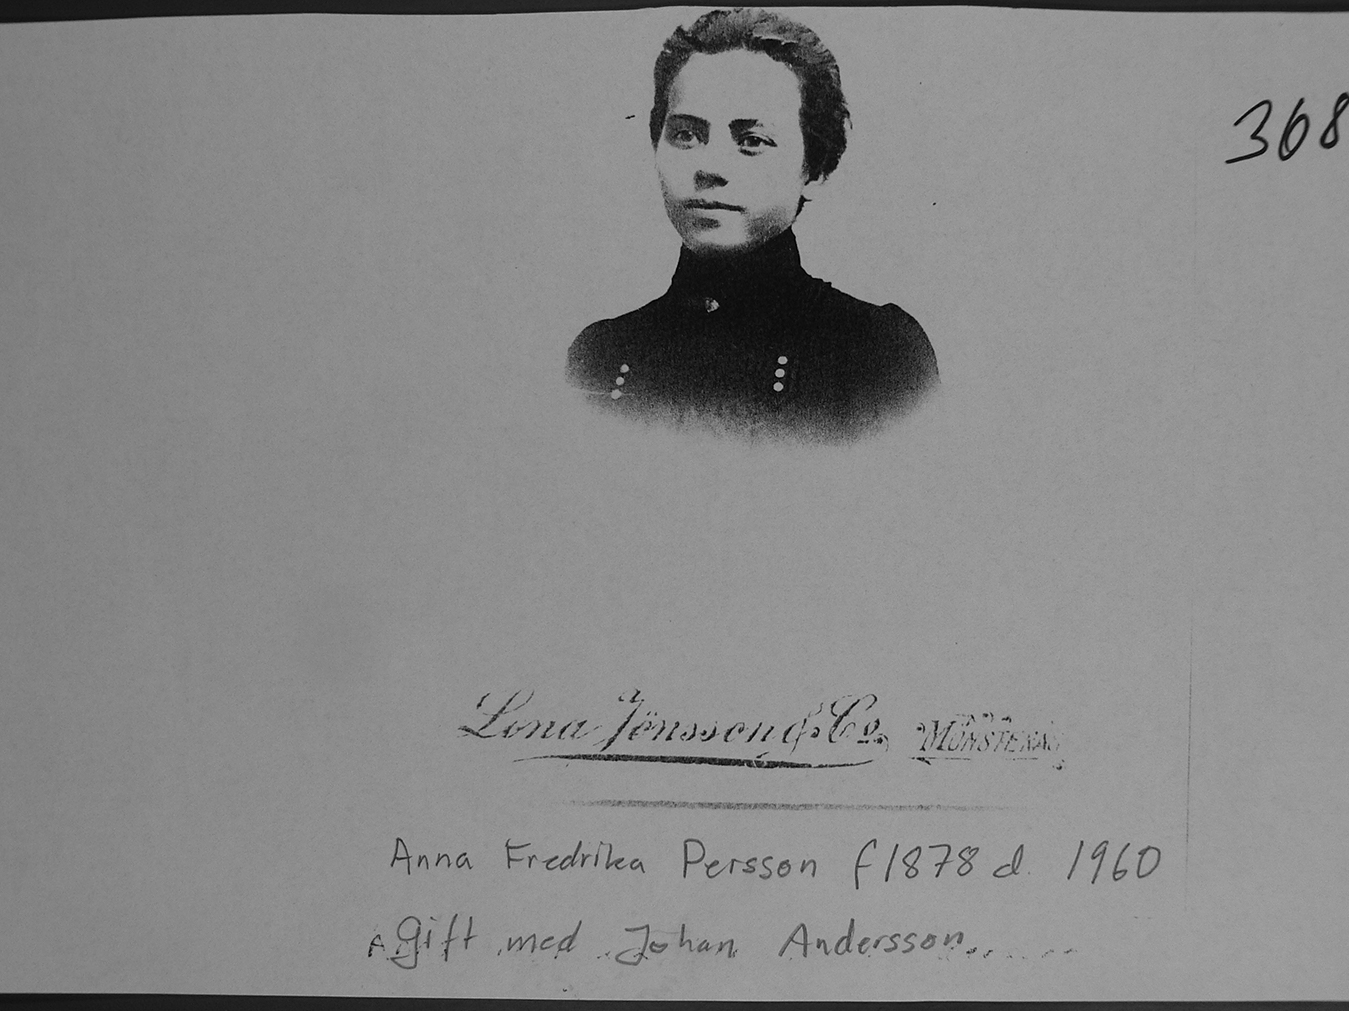 368
Lona Jönsson & Co. MÖNSTERÅS
Anna Fredrika Persson f 1878 d. 1960
Gift med Johan Andersson